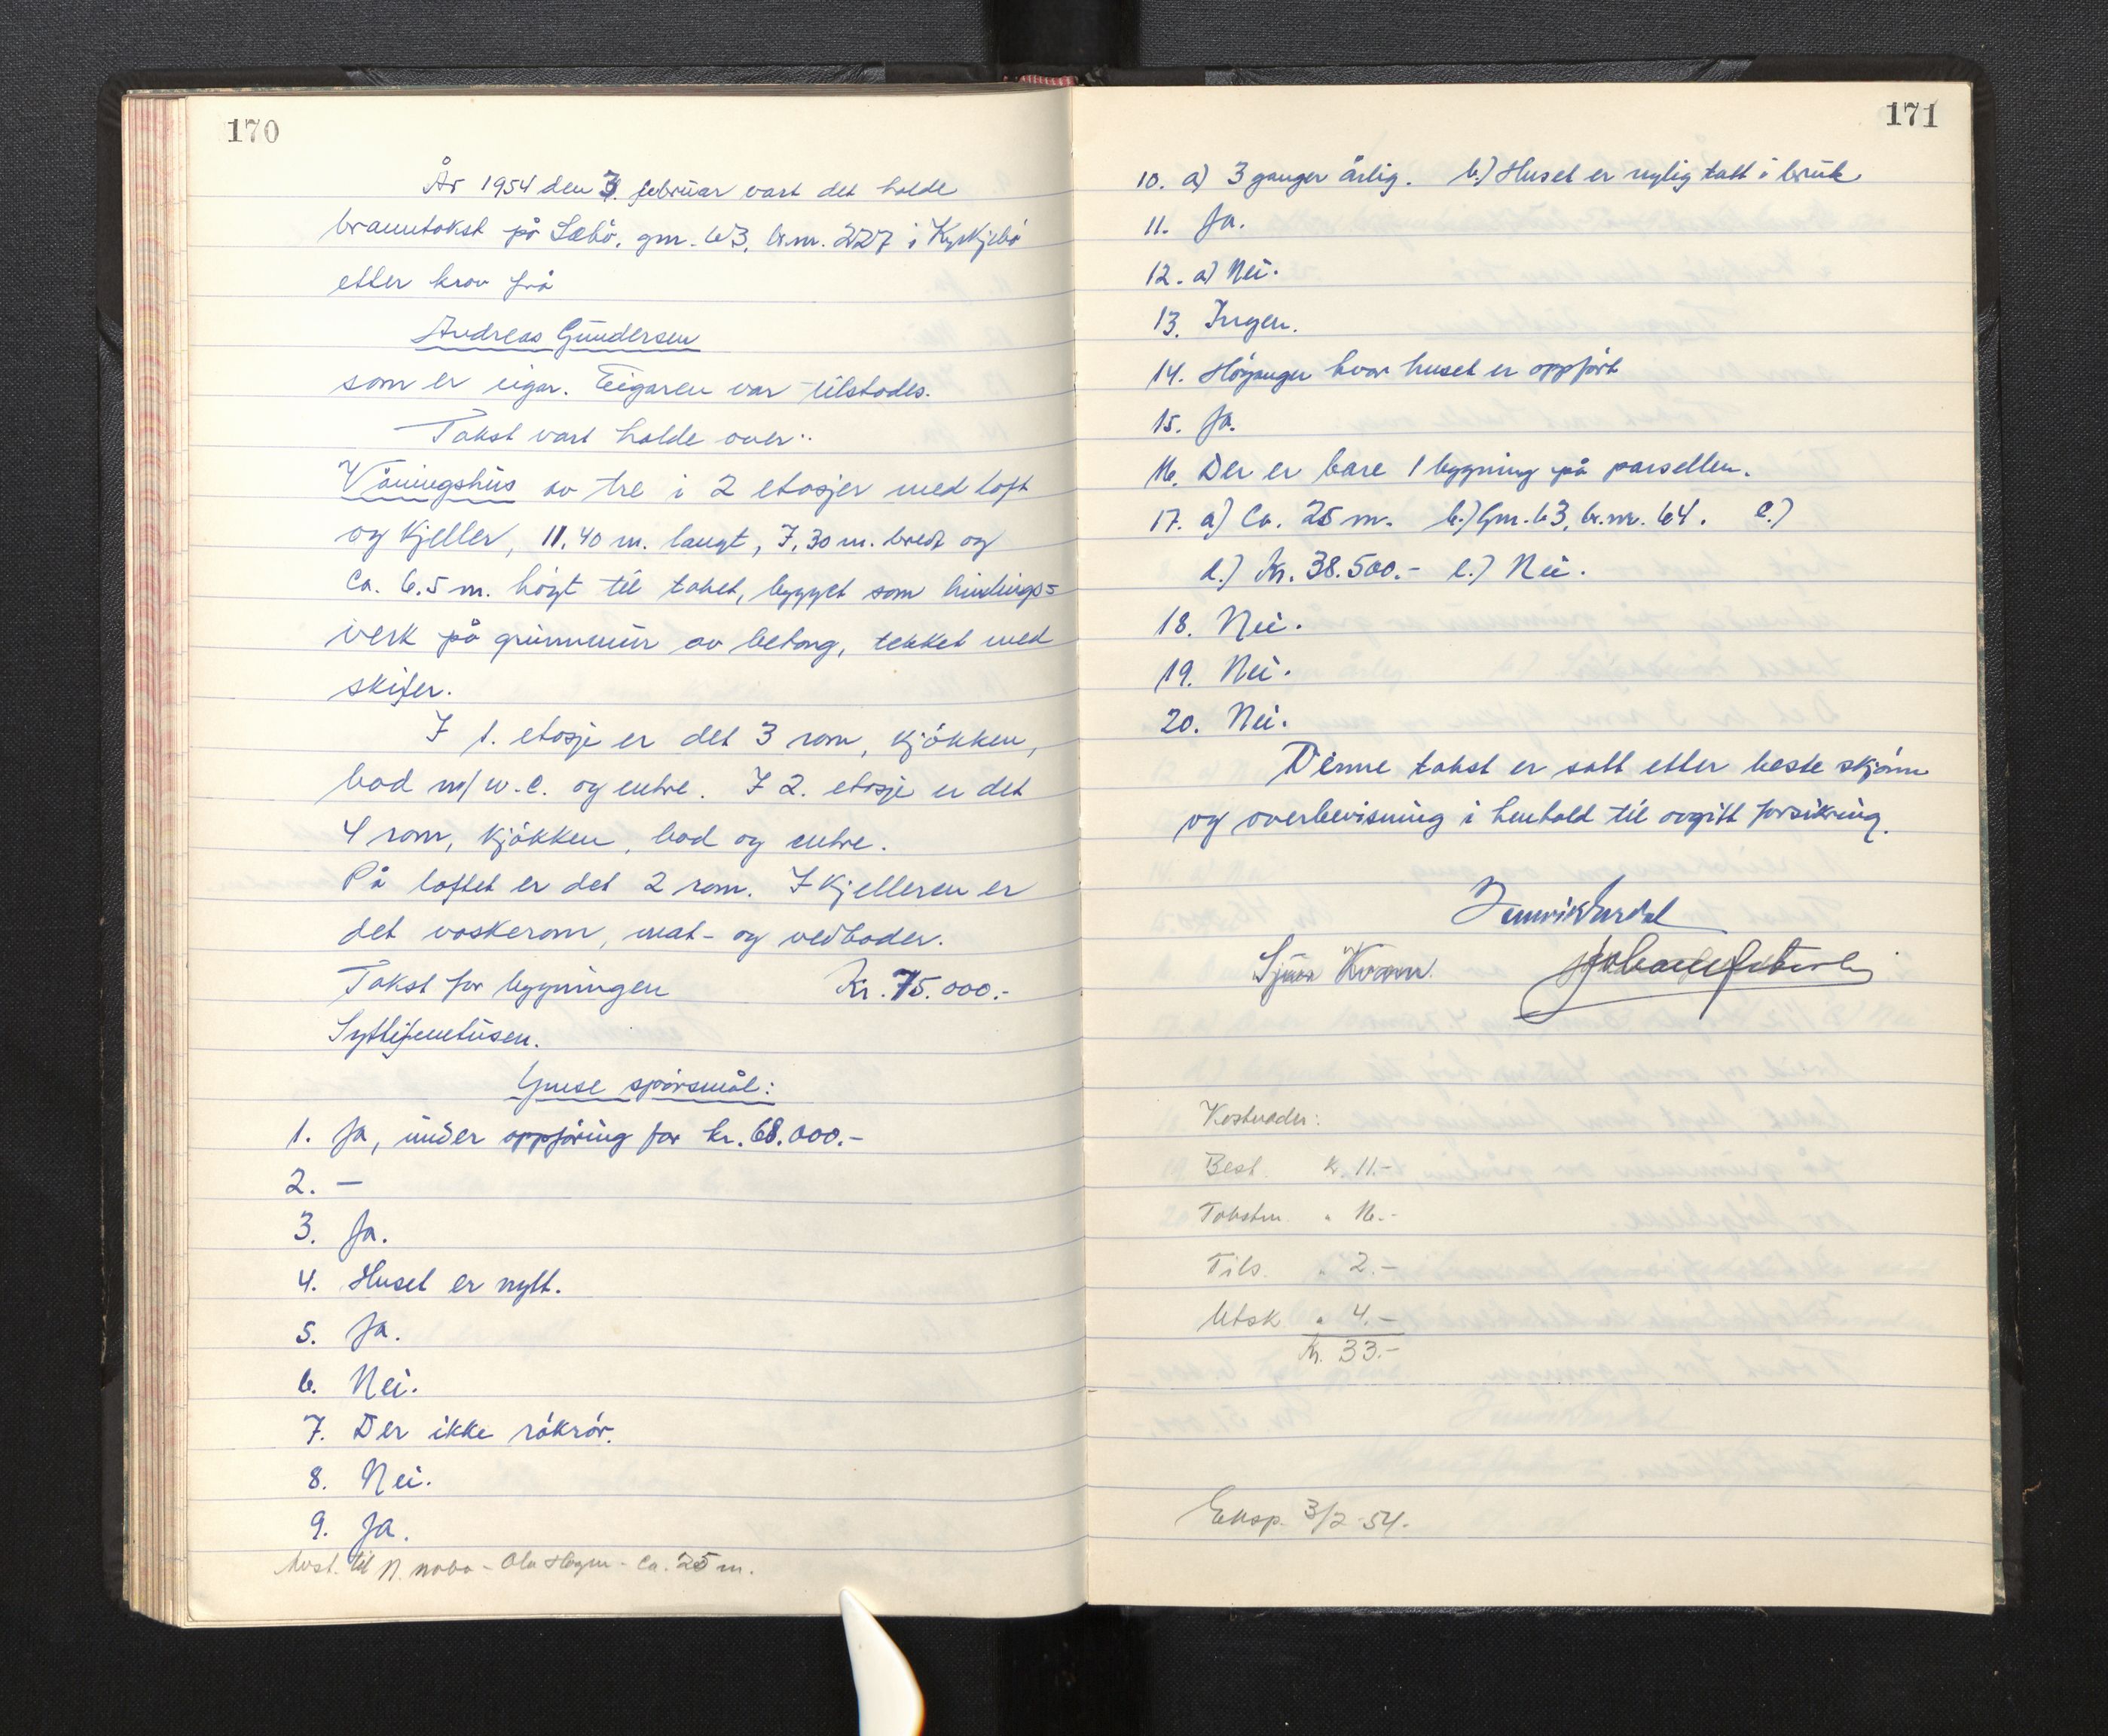 170
År 1954 den 3. februar vart det halde
branntakst på Sæbö, gnr. 63, br.nr. 227 i Kyrkjebö
etter krav frå
Andreas Gundersen
som er eigar. Eigaren var tilstades.
Takst vart halde over:
Våningshus av tre i 2 etasjer med loft
og kjeller, 11.40 m. langt, 7,30 m. bredt og
ca. 6.5 m. högt til taket, bygget som bindings=
verk på grunnmur av betong, tekket med
skifer.
I 1. etasje er det 3 rom, kjökken,
bad m/ w.c. og entre. I 2. etasje er det
4 rom, kjökken, bad og entre.
På loftet er det 2 rom. I kjelleren er
det vaskerom, mat- og vedboder.
Takst for bygningen Kr. 75.000.-
Syttifemtusen.
Ymse spörsmål:
1. Ja, under oppföring for kr. 68.000.-
2. —
3. Ja.
4. Huset er nytt.
5. Ja.
6. Nei.
7. Der ikke rökrör.
8. Nei.
9. Ja.
Avst. til N. nabo - Ola - ca. 25 m.
171
10. a) 3 ganger årlig. b.) Huset er nylig tatt i bruk
11. Ja.
12. a) Nei.
13. Ingen.
14. Höyanger hvor huset er oppfört
15. Ja.
16. Der er bare 1 bygning på parsellen.
17. a) Ca. 25 m. b.) Gnr. 63, br.nr. 64. c.)
d.) Kr. 38.500.- e.) Nei.
18. Nei.
19. Nei.
20. Nei.
Denne takst er satt etter beste skjönn
og overbevisning i henhold til avgitt forsikring.
Kvamme
Kostnader:
Best. Kr. 11.-
Takstm. " 16.-
Tils. " 2.-
Utsk. " 4.-
Kr. 33.-
Eksp. 3/2-54.